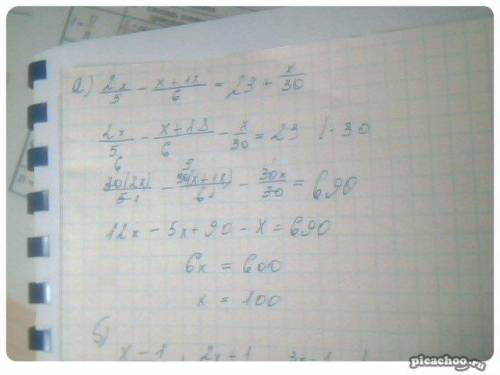 а) 2x/5 - x+18/6 = 23 + x/30
2x/5 - x+18/6 - x/30 = 23 |·30
30(2x)/5 - 30(x+18)/6 - 30x/30 = 690
12x - 5x + 90 - x = 690
6x = 600
x = 100
б)
x-1 2x+1 3x-1
picachoo.ru